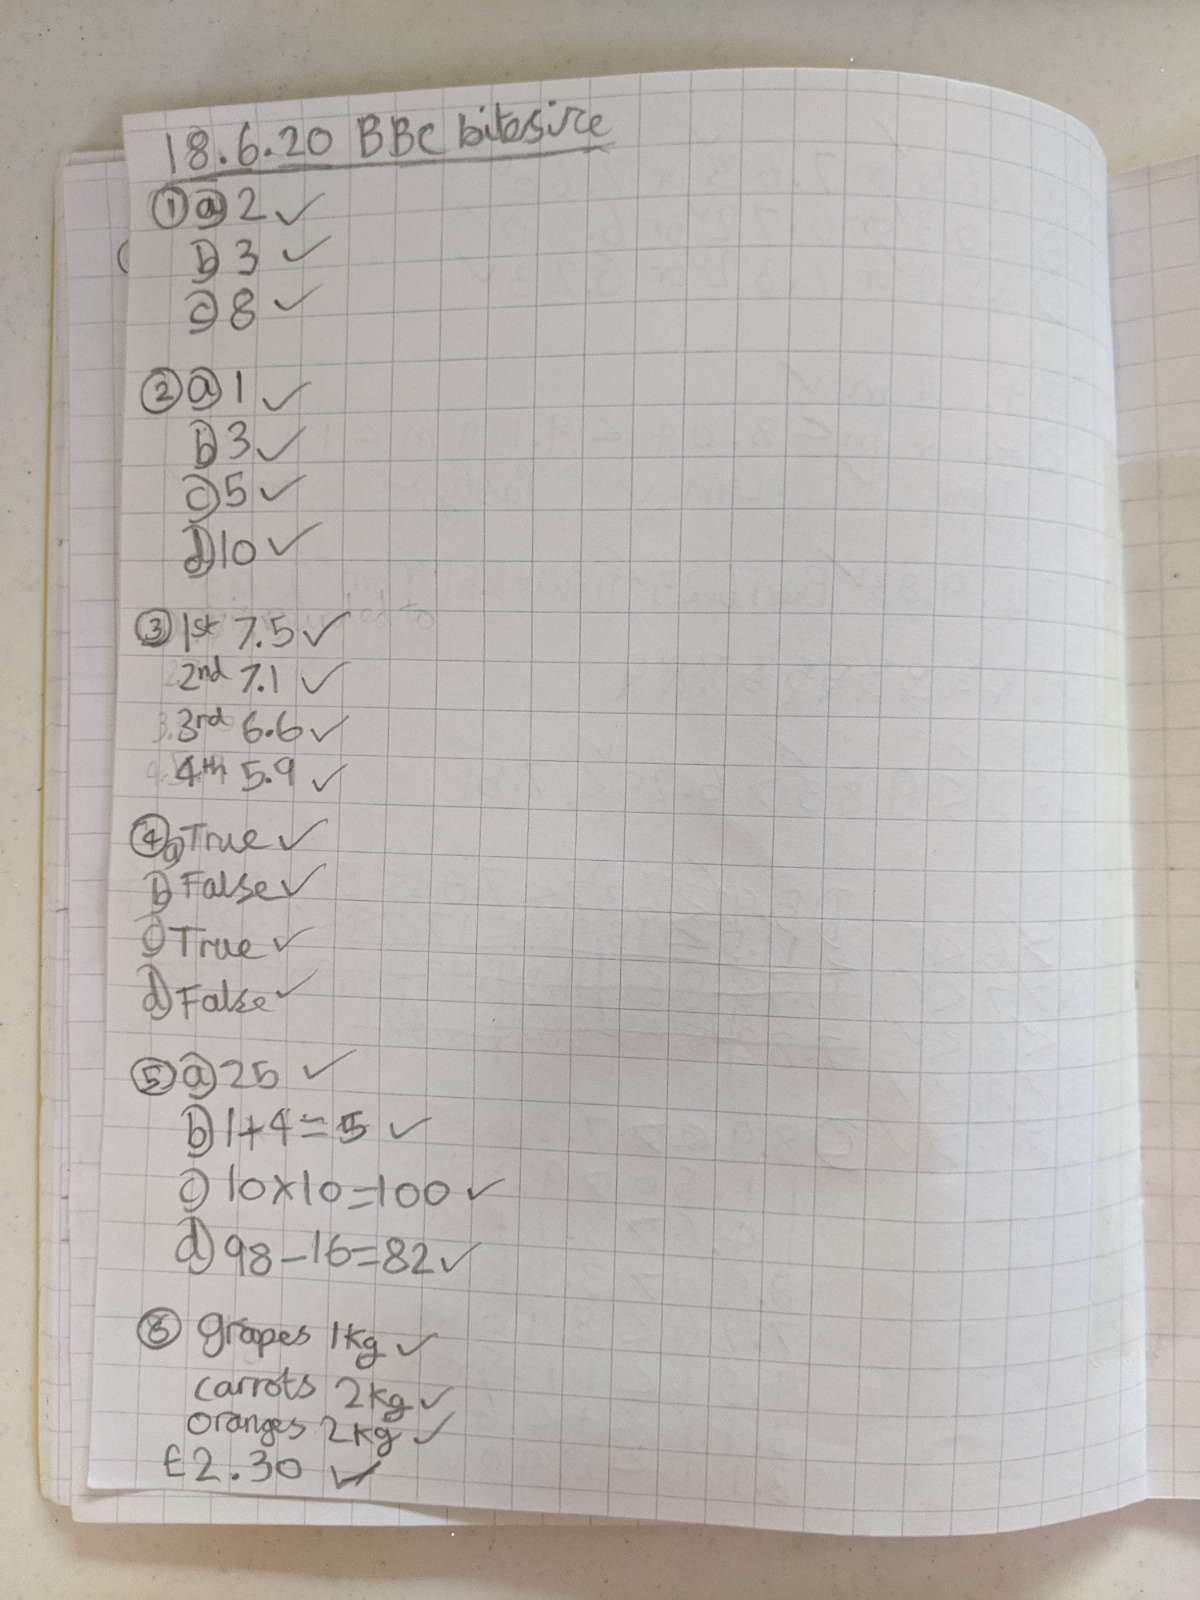 18.6.20 BBC bitesize
① ⓐ 2 ✓
ⓑ 3 ✓
ⓒ 8 ✓
② ⓐ 1 ✓
ⓑ 3 ✓
ⓒ 5 ✓
ⓓ 10 ✓
③ 1st 7.5 ✓
2nd 7.1 ✓
3rd 6.6 ✓
4th 5.9 ✓
④ ⓐ True ✓
ⓑ False ✓
ⓒ True ✓
ⓓ False ✓
⑤ ⓐ 25 ✓
ⓑ 1+4=5 ✓
ⓒ 10×10=100 ✓
ⓓ 98-16=82 ✓
⑥ grapes 1kg ✓
carrots 2kg ✓
oranges 2kg ✓
£2.30 ✓